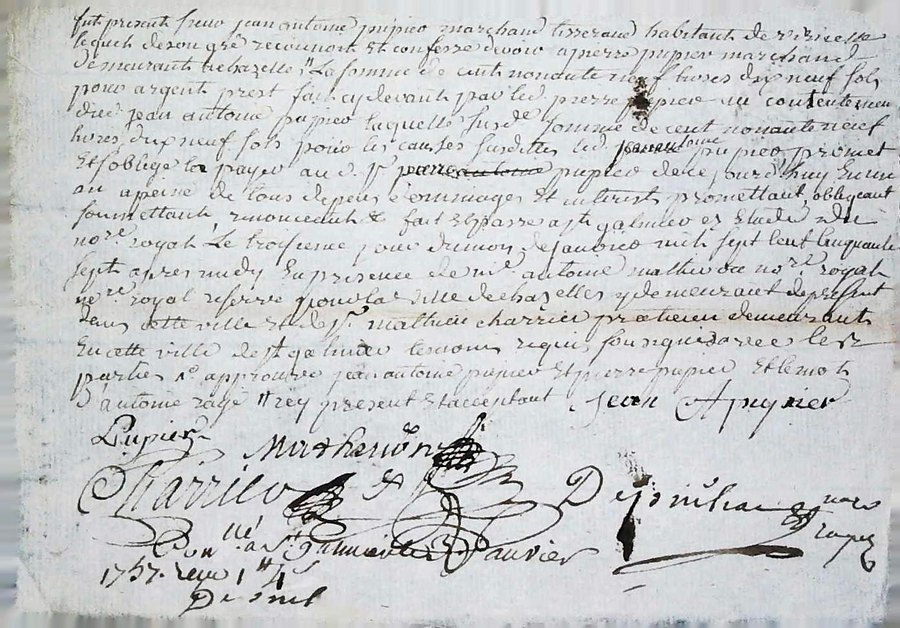 fut present sieur jean antoine pupier marchand tisserand habitant de viricelle
lequel de son gré reconnoit et confesse devoir a pierre pupier marchand
demeurant a chazelle La somme de cent nonante neuf livres dix neuf sols
pour argent prest fait cy devant par led pierre pupier au contentement
dud jean antoine pupier laquelle susde somme de cent nonante neuf
livres dix neuf sols pour les causes susdittes led jean antoine pupier promet
Et soblige la payer aud. sr pierre antoine pupier de ce jourdhuy en un
an a peine de tous depens dommages Et interest promettant, obligeant
soumettant renonceant & fait et passé a st galmier es Etude du
nore. royal Le troisieme jour du mois de janvier mil sept cent cinquante
sept apres midy En presence de me antoine mathevon nore. royal
nore. royal reservé pour la ville de chazelles y demeurant de present
dans cette ville et de sr. mathieu charrier praticien demeurant
En cette ville de st galmier temoins requis soussignés avec les
parties approuvé jean antoine pupier Et pierre pupier Et le mot
d antoine rayé present Et acceptant Jean A pupier
Pupier
Mathevon
Charrier
nore royal
Con lé a St galmier le janvier
1757. reçu